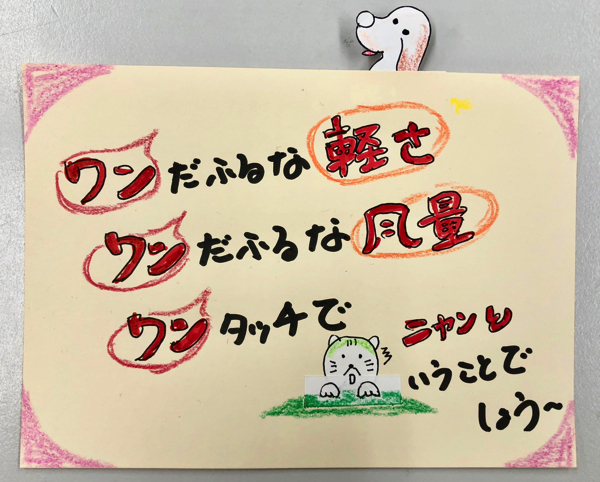 ワンだふるな軽さ
ワンだふるな風量
ワンタッチで
ニャンと
いうことで
しょう〜